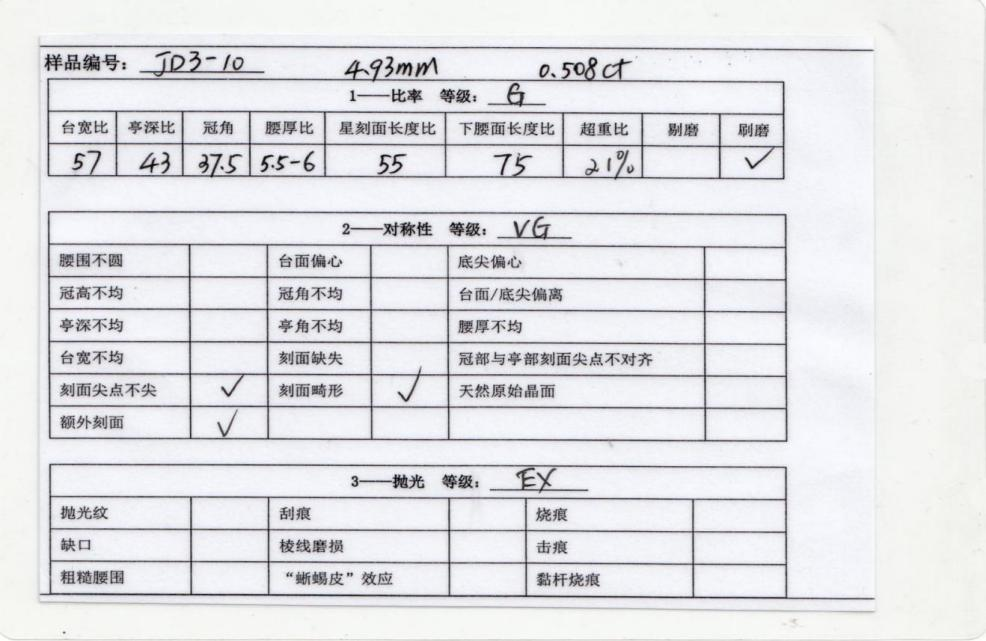 样品编号： JD3-10 4.93mm 0.508ct
1——比率 等级： G
台宽比 亭深比 冠角 腰厚比 星刻面长度比 下腰面长度比 超重比 剔磨 刷磨
57 43 37.5 5.5-6 55 75 21% ✓
2——对称性 等级： VG
腰围不圆 台面偏心 底尖偏心
冠高不均 冠角不均 台面/底尖偏离
亭深不均 亭角不均 腰厚不均
台宽不均 刻面缺失 冠部与亭部刻面尖点不对齐
刻面尖点不尖 ✓ 刻面畸形 ✓ 天然原始晶面
额外刻面 ✓
3——抛光 等级： EX
抛光纹 刮痕 烧痕
缺口 棱线磨损 击痕
粗糙腰围 “蜥蜴皮”效应 黏杆烧痕